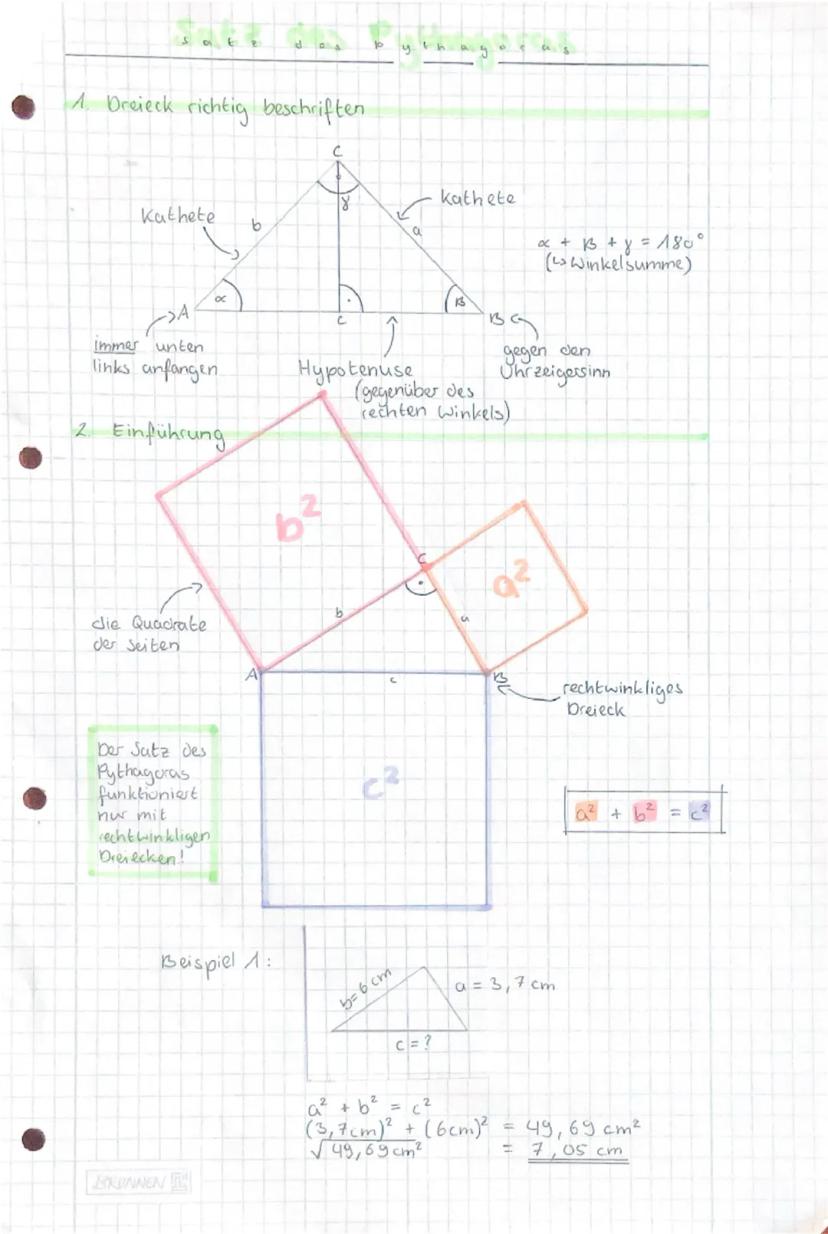 Satz des Pythagoras
1. Dreieck richtig beschriften
C
γ
Kathete
b
a
Kathete
α + β + γ = 180°
(↳ Winkelsumme)
A
α
c
β
B
immer unten
links anfangen
Hypotenuse
(gegenüber des
rechten Winkels)
gegen den
Uhrzeigersinn
2. Einführung
b²
C
a²
die Quadrate
der Seiten
b
a
A
c
B
rechtwinkliges
Dreieck
Der Satz des
Pythagoras
funktioniert
nur mit
rechtwinkligen
Dreiecken!
c²
a² + b² = c²
Beispiel 1:
b = 6 cm
a = 3,7 cm
c = ?
a² + b² = c²
(3,7cm)² + (6cm)² = 49,69 cm²
√49,69cm² = 7,05 cm
BRUNNEN